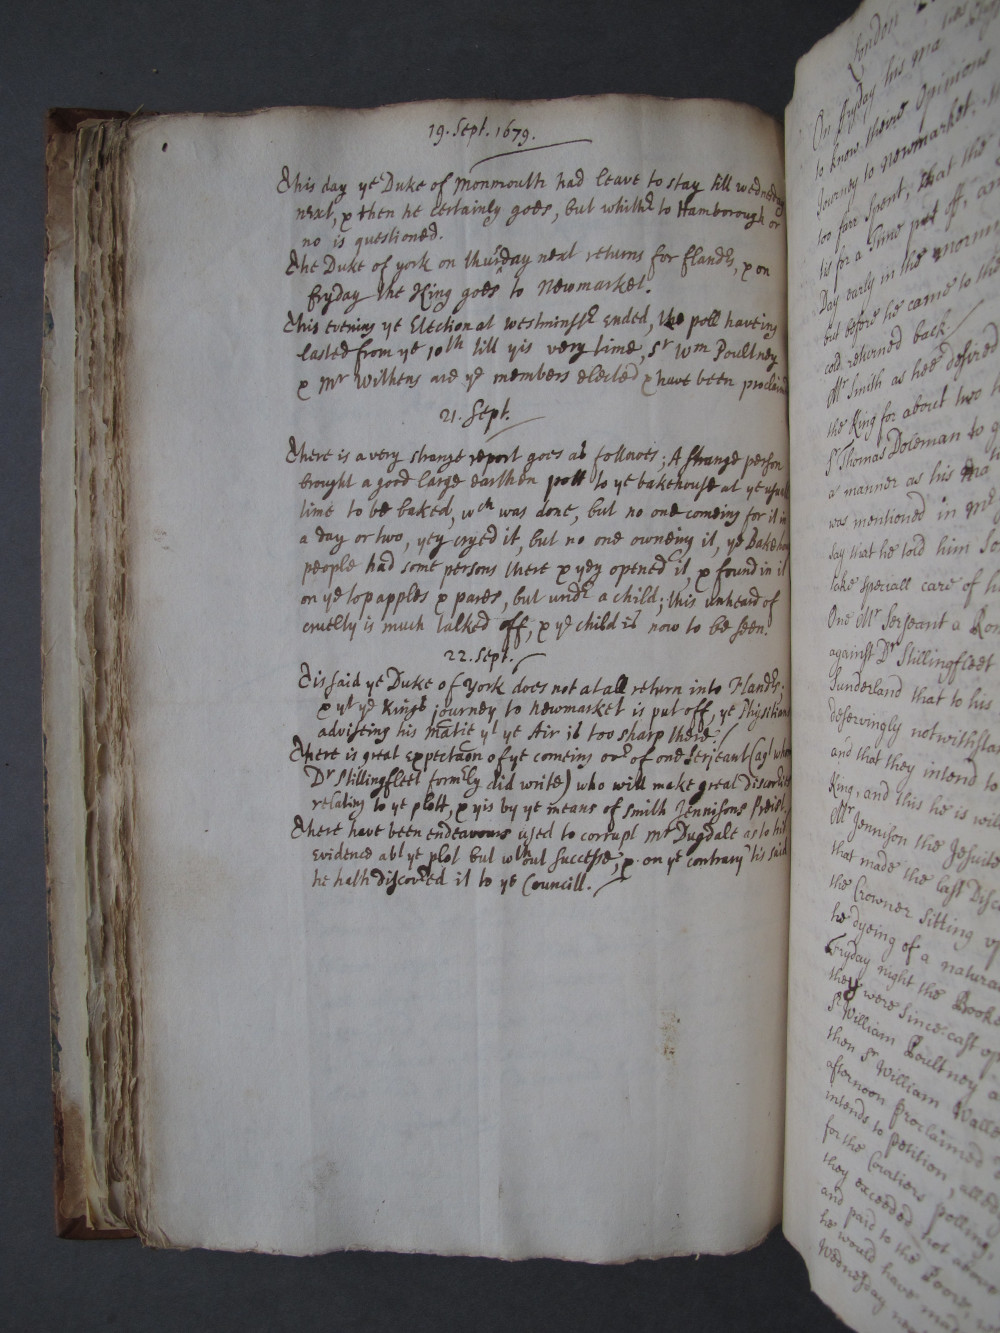 19. Sept. 1679.
This day ye Duke of Monmouth had leave to stay till wednesday
next, & then he certainly goes, but whithr to Hamborough or
no is questioned.
The Duke of york on thursday next returns for flandrs, & on
fryday the King goes to Newmarket.
This evening ye Election at westminstr ended, the poll haveing
lasted from ye 10th till yis very time, Sr Wm Poultney
& Mr Withens are ye members elected & have been proclaimd
21. Sept.
There is a very strange report goes as followes; A strange person
brought a good large earthen pott to ye bakehouse at ye usuall
time to be baked, wch was done, but no one comeing for it in
a day or two, yey cryed it, but no one owneing it, ye Bakehouse
people had some persons there & yey opened it, & found in it
on ye top apples & pares, but undr a child; this unheard of
cruelty is much talked off, & ye child is now to be seen.
22. Sept.
Tis said ye Duke of York does not at all return into Flandrs;
& yt ye Kings journey to Newmarket is put off, ye Physitians
advising his Matie yt ye Air is too sharp there.
There is great expectaon of ye comeing ovr of one Serjeant (agt whom
Dr Stillingfleet formrly did write) who will make great discoveries
relating to ye plott, & yis by ye means of Smith Jennisons Preist.
There have been endeavours used to corrupt Mr Dugdale as to his
Evidence abt ye plot but wthout successe, & on ye contrary tis said
he hath discovred it to ye Councill.
London
On fryday his Ma
to know theire Opinions
Journey to Newmarket.
too farr spent, that the
tis for a Time put off, and
Day early in the morning
but before he came to the
cold, returned back
Mr Smith as hee desired
the King for about two h
Sr Thomas Doleman to g
a manner as his Matie
was mentioned in Mr
say that he told him
take speciall care of h
One Mr Serjeant a Rom
against Dr Stillingfleet
Sunderland that to his
deservingly notwithsta
and that they intend to
King, and this he is will
Mr Jennison the Jesuite
that made the last Disco
the Crowner sitting up
he dyeing of a natura
Fryday night the Booke
they were since cast up
Sr William Poultney a
then Sr William Walle
afternoon proclaimed
intends to petition, alled
for the Courtiers polling
they exceeded not above
and paid to the Poore
he would have mad
Wednesday ne